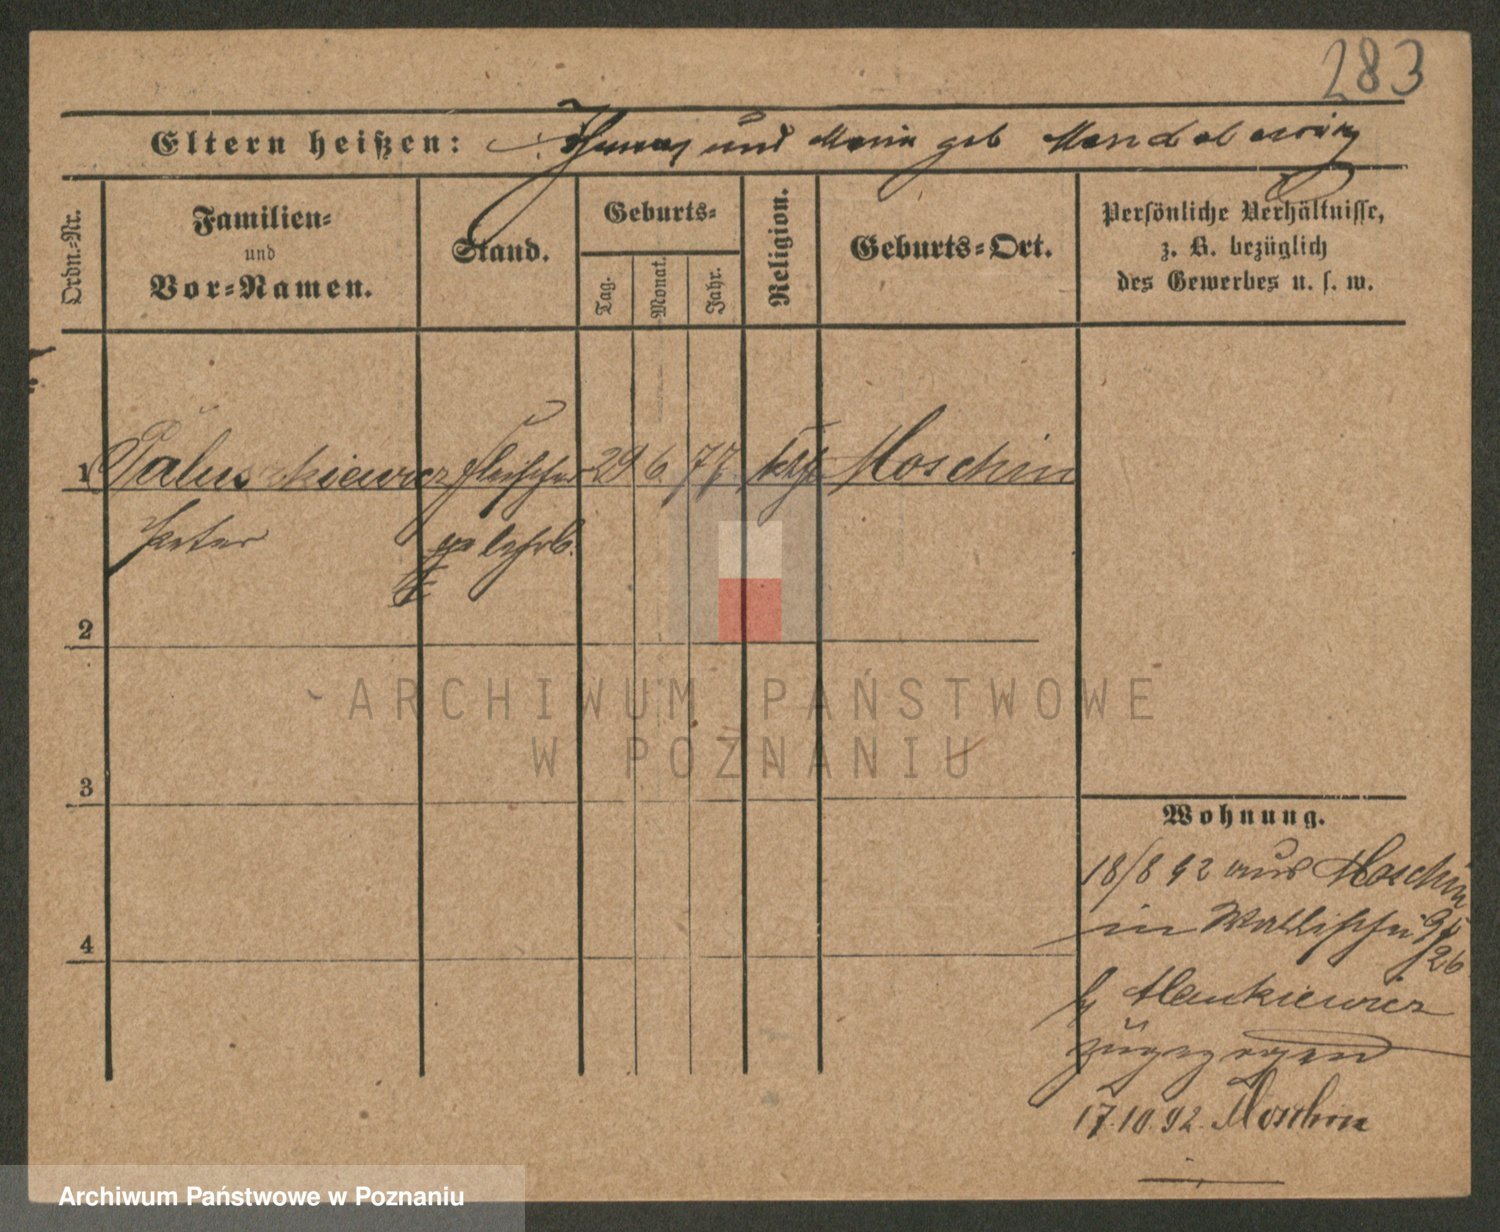 283
Eltern heißen: Thomas und Maria geb
Ordn.-Nr.
Familien-
und
Vor-Namen.
Stand.
Geburts-
Tag.
Monat.
Jahr.
Religion.
Geburts-Ort.
Persönliche Verhältnisse,
z. B. bezüglich
des Gewerbes u. s. w.
1 Paluszkiewicz Fleischer 29 6 77 kth Moschin
Peter
2
3
4
ARCHIWUM PAŃSTWOWE
W POZNANIU
Wohnung.
18/8 92 aus Moschin
in Wallischei
26
by Mankiewicz
zugezogen
17.10.92. Moschin
Archiwum Państwowe w Poznaniu